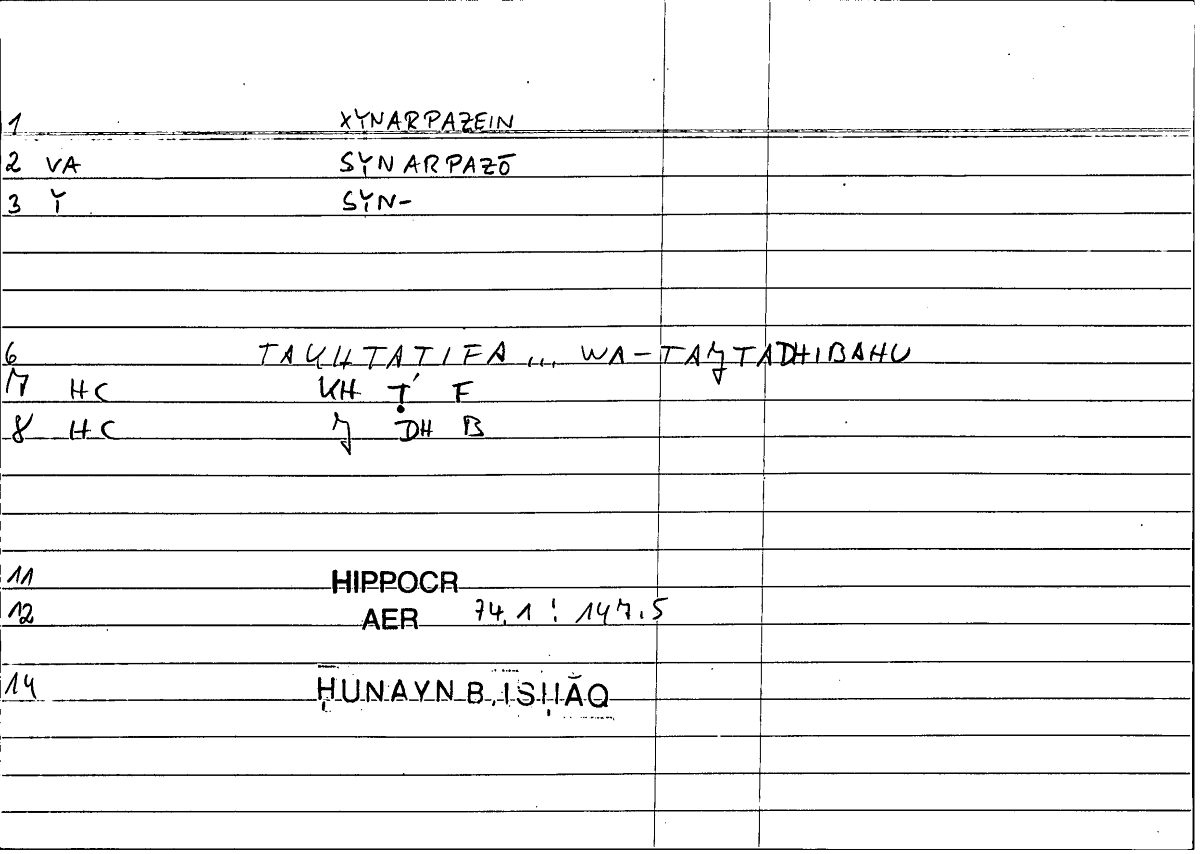 1 XŸNARPAZEIN
2 VA SŸNARPAZŌ
3 Ÿ SŸN-
6 TAKHTATIFA ... WA-TAĴTADHIBAHU
7 HC KH Ṭ F
8 HC J DH B
11 HIPPOCR
12 AER 74.1 : 147.5
14 ḤUNAYN B. ISḤĀQ